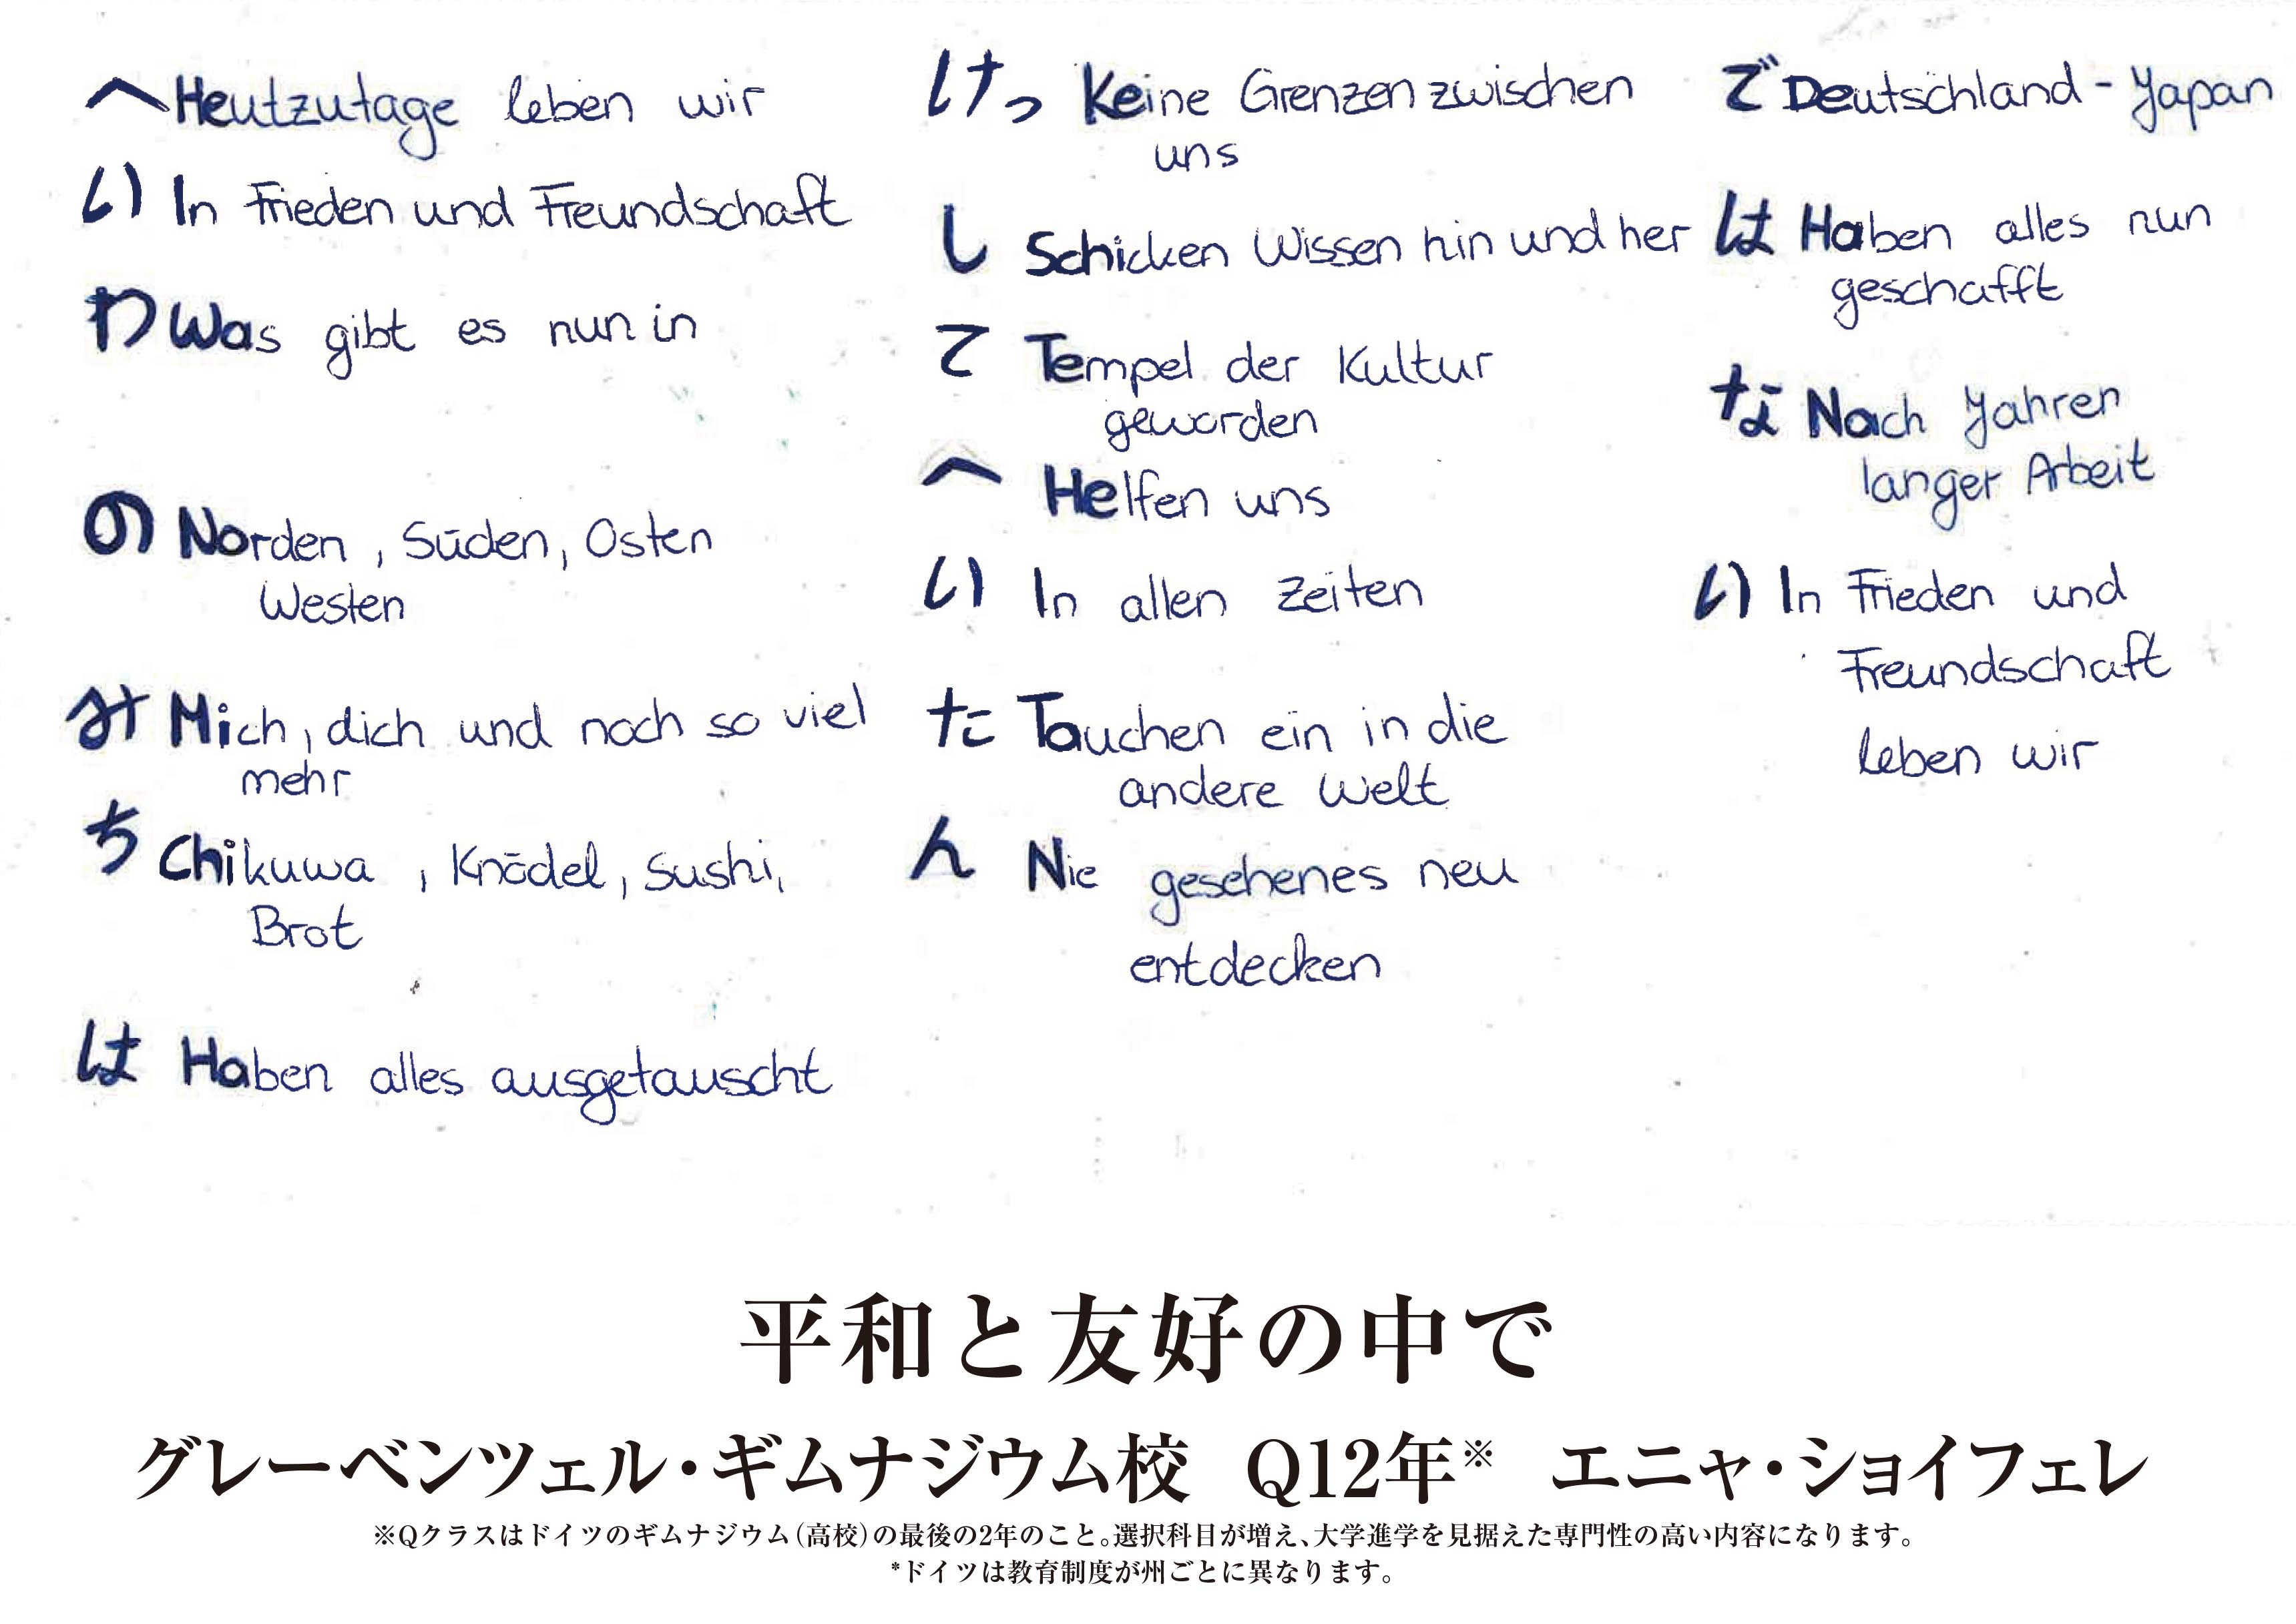 へ Heutzutage leben wir
い In Frieden und Freundschaft
わ Was gibt es nun in
の Norden, Süden, Osten
Westen
み Mich, dich und noch so viel
mehr
ち Chikuwa, Knödel, Sushi,
Brot
は Haben alles ausgetauscht
けっ Keine Grenzen zwischen
uns
し Schicken Wissen hin und her
て Tempel der Kultur
geworden
へ Helfen uns
い In allen Zeiten
た Tauchen ein in die
andere Welt
ん Nie gesehenes neu
entdecken
で Deutschland - Japan
は Haben alles nun
geschafft
な Nach Jahren
langer Arbeit
い In Frieden und
Freundschaft
leben wir
平和と友好の中で
グレーベンツェル・ギムナジウム校 Q12年※ エニャ・ショイフェレ
※Qクラスはドイツのギムナジウム(高校)の最後の2年のこと。選択科目が増え、大学進学を見据えた専門性の高い内容になります。
*ドイツは教育制度が州ごとに異なります。